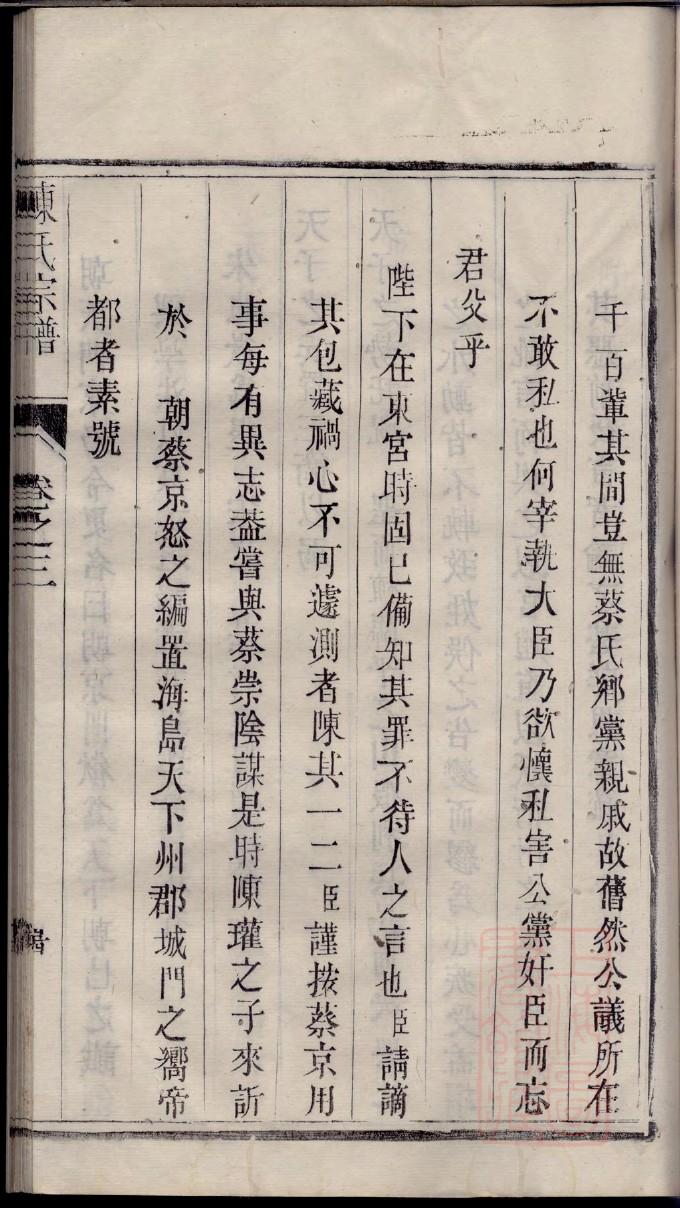 千百輩其間豈無蔡氏鄉黨親戚故舊然公議所在
不敢私也何宰執大臣乃欲懷私害公黨奸臣而忘
君父乎
陛下在東宮時固已備知其罪不待人之言也臣請謫
其包藏禍心不可遽測者陳其一二臣謹按蔡京用
事每有異志葢嘗與蔡崇陰謀是時陳瓘之子來訴
於 朝蔡京怒之編置海島天下州郡城門之嚮帝
都者素號
陳氏宗譜 卷之三